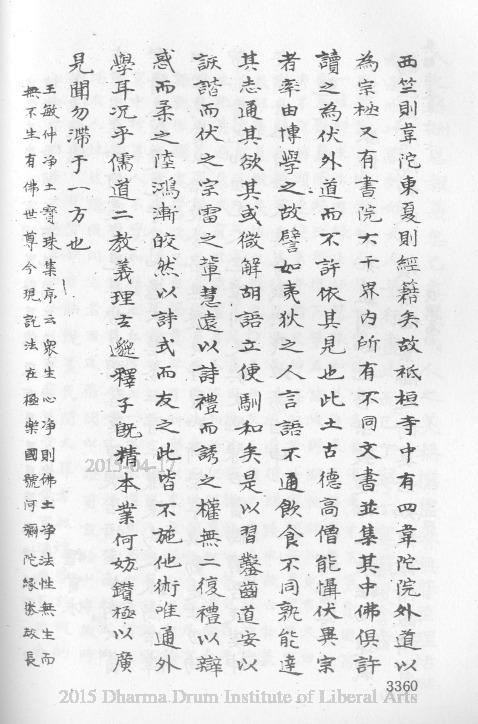 西竺則韋陀東夏則經籍矣故祇桓寺中有四韋陀院外道以
為宗極又有書院大千界內所有不同文書並集其中佛俱許
讀之為伏外道而不許依其見也此土古德高僧能懾伏異宗
者率由博學之故譬如夷狄之人言語不通飲食不同孰能達
其志通其欲其或微解胡語立便馴和矣是以習鑿齒道安以
詼諧而伏之宗雷之輩慧遠以詩禮而誘之權無二復禮以辯
惑而柔之陸鴻漸皎然以詩式而友之此皆不施他術唯通外
學耳況乎儒道二教義理玄邈釋子既精本業何妨鑽極以廣
見聞勿滯于一方也
王敏仲淨土寶珠集序云衆生心淨則佛土淨法性無生而
無不生有佛世尊今現說法在極樂國號阿彌陀緣崇啟長
2015-04-17
3360
2015 Dharma Drum Institute of Liberal Arts